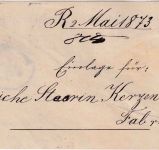 R 2 Mai 1873
Einlage für:
che Stearin Kerzen
Fabr